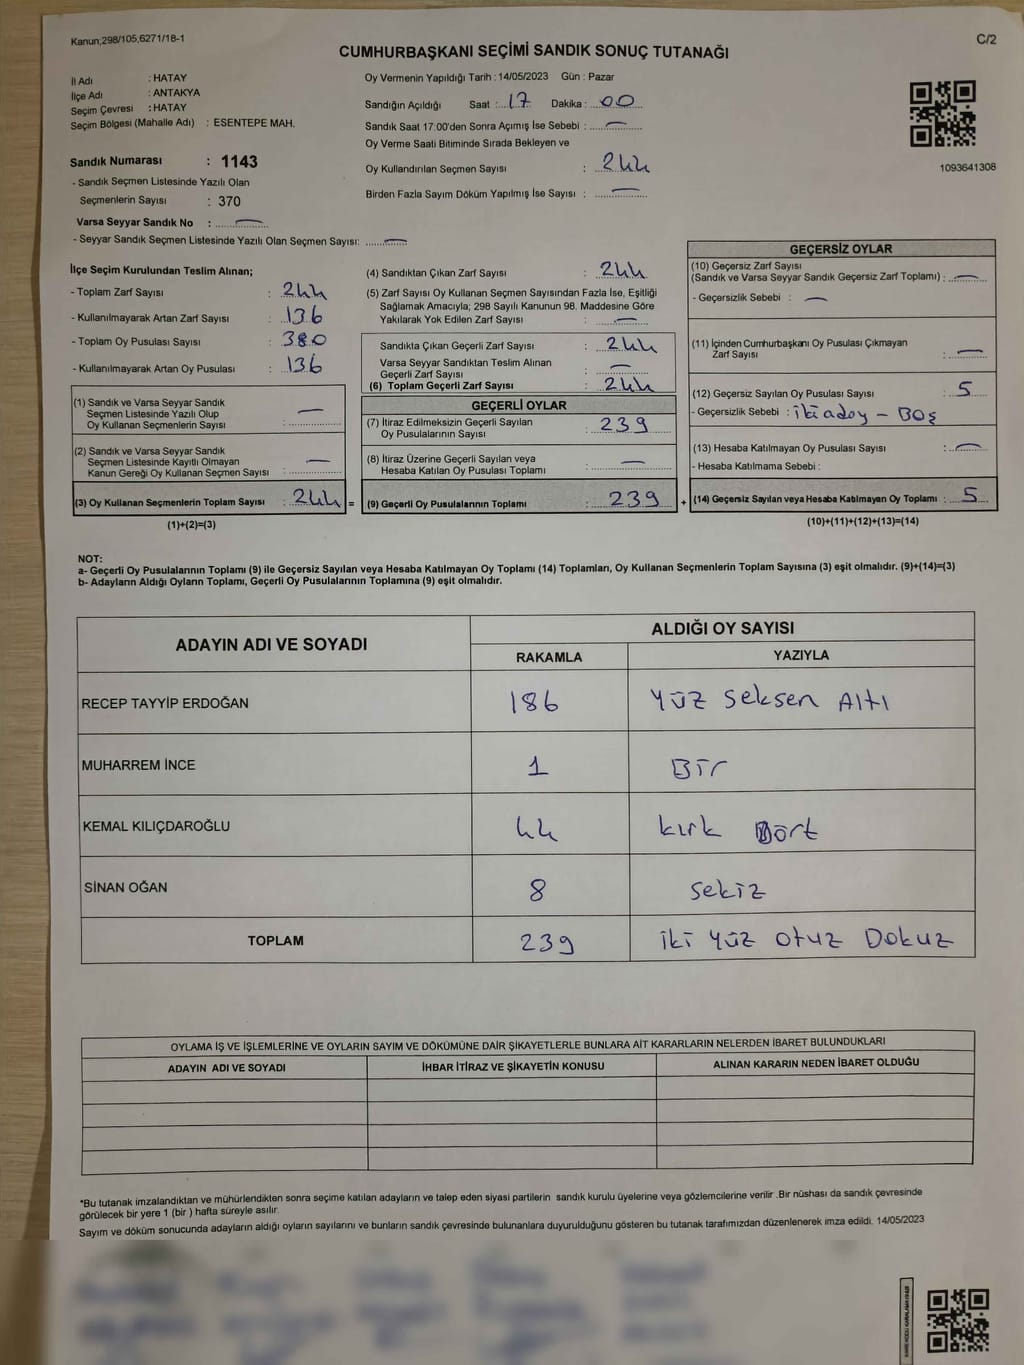 Kanun;298/105,6271/18-1
C/2
CUMHURBAŞKANI SEÇİMİ SANDIK SONUÇ TUTANAĞI
İl Adı : HATAY
İlçe Adı : ANTAKYA
Seçim Çevresi : HATAY
Seçim Bölgesi (Mahalle Adı) : ESENTEPE MAH.
Sandık Numarası : 1143
- Sandık Seçmen Listesinde Yazılı Olan
Seçmenlerin Sayısı : 370
Varsa Seyyar Sandık No : —
- Seyyar Sandık Seçmen Listesinde Yazılı Olan Seçmen Sayısı: —
Oy Vermenin Yapıldığı Tarih : 14/05/2023 Gün : Pazar
Sandığın Açıldığı Saat : 17 Dakika : 00
Sandık Saat 17:00'den Sonra Açımış İse Sebebi : —
Oy Verme Saati Bitiminde Sırada Bekleyen ve
Oy Kullandırılan Seçmen Sayısı : 244
Birden Fazla Sayım Döküm Yapılmış İse Sayısı : —
1093641308
İlçe Seçim Kurulundan Teslim Alınan;
- Toplam Zarf Sayısı : 244
- Kullanılmayarak Artan Zarf Sayısı : 136
- Toplam Oy Pusulası Sayısı : 380
- Kullanılmayarak Artan Oy Pusulası : 136
(1) Sandık ve Varsa Seyyar Sandık
Seçmen Listesinde Yazılı Olup
Oy Kullanan Seçmenlerin Sayısı : —
(2) Sandık ve Varsa Seyyar Sandık
Seçmen Listesinde Kayıtlı Olmayan
Kanun Gereği Oy Kullanan Seçmen Sayısı : —
(3) Oy Kullanan Seçmenlerin Toplam Sayısı : 244 =
(1)+(2)=(3)
(4) Sandıktan Çıkan Zarf Sayısı : 244
(5) Zarf Sayısı Oy Kullanan Seçmen Sayısından Fazla İse, Eşitliği
Sağlamak Amacıyla; 298 Sayılı Kanunun 98. Maddesine Göre
Yakılarak Yok Edilen Zarf Sayısı : —
Sandıkta Çıkan Geçerli Zarf Sayısı : 244
Varsa Seyyar Sandıktan Teslim Alınan
Geçerli Zarf Sayısı : —
(6) Toplam Geçerli Zarf Sayısı : 244
GEÇERLİ OYLAR
(7) İtiraz Edilmeksizin Geçerli Sayılan
Oy Pusulalarının Sayısı : 239
(8) İtiraz Üzerine Geçerli Sayılan veya
Hesaba Katılan Oy Pusulası Toplamı : —
(9) Geçerli Oy Pusulalarının Toplamı : 239 +
GEÇERSİZ OYLAR
(10) Geçersiz Zarf Sayısı
(Sandık ve Varsa Seyyar Sandık Geçersiz Zarf Toplamı) : —
- Geçersizlik Sebebi : —
(11) İçinden Cumhurbaşkanı Oy Pusulası Çıkmayan
Zarf Sayısı : —
(12) Geçersiz Sayılan Oy Pusulası Sayısı : 5
- Geçersizlik Sebebi : iki adoy - Boş
(13) Hesaba Katılmayan Oy Pusulası Sayısı : —
- Hesaba Katılmama Sebebi :
(14) Geçersiz Sayılan veya Hesaba Katılmayan Oy Toplamı : 5
(10)+(11)+(12)+(13)=(14)
NOT:
a- Geçerli Oy Pusulalarının Toplamı (9) ile Geçersiz Sayılan veya Hesaba Katılmayan Oy Toplamı (14) Toplamları, Oy Kullanan Seçmenlerin Toplam Sayısına (3) eşit olmalıdır. (9)+(14)=(3)
b- Adayların Aldığı Oyların Toplamı, Geçerli Oy Pusulalarının Toplamına (9) eşit olmalıdır.
ADAYIN ADI VE SOYADI
ALDIĞI OY SAYISI
RAKAMLA YAZIYLA
RECEP TAYYİP ERDOĞAN 186 Yüz Seksen Altı
MUHARREM İNCE 1 Bir
KEMAL KILIÇDAROĞLU 44 kırk Dört
SİNAN OĞAN 8 Sekiz
TOPLAM 239 iki yüz otuz Dokuz
OYLAMA İŞ VE İŞLEMLERİNE VE OYLARIN SAYIM VE DÖKÜMÜNE DAİR ŞİKAYETLERLE BUNLARA AİT KARARLARIN NELERDEN İBARET BULUNDUKLARI
ADAYIN ADI VE SOYADI İHBAR İTİRAZ VE ŞİKAYETİN KONUSU ALINAN KARARIN NEDEN İBARET OLDUĞU
*Bu tutanak imzalandıktan ve mühürlendikten sonra seçime katılan adayların ve talep eden siyasi partilerin sandık kurulu üyelerine veya gözlemcilerine verilir .Bir nüshası da sandık çevresinde
görülecek bir yere 1 (bir ) hafta süreyle asılır.
Sayım ve döküm sonucunda adayların aldığı oyların sayılarını ve bunların sandık çevresinde bulunanlara duyurulduğunu gösteren bu tutanak tarafımızdan düzenlenerek imza edildi. 14/05/2023